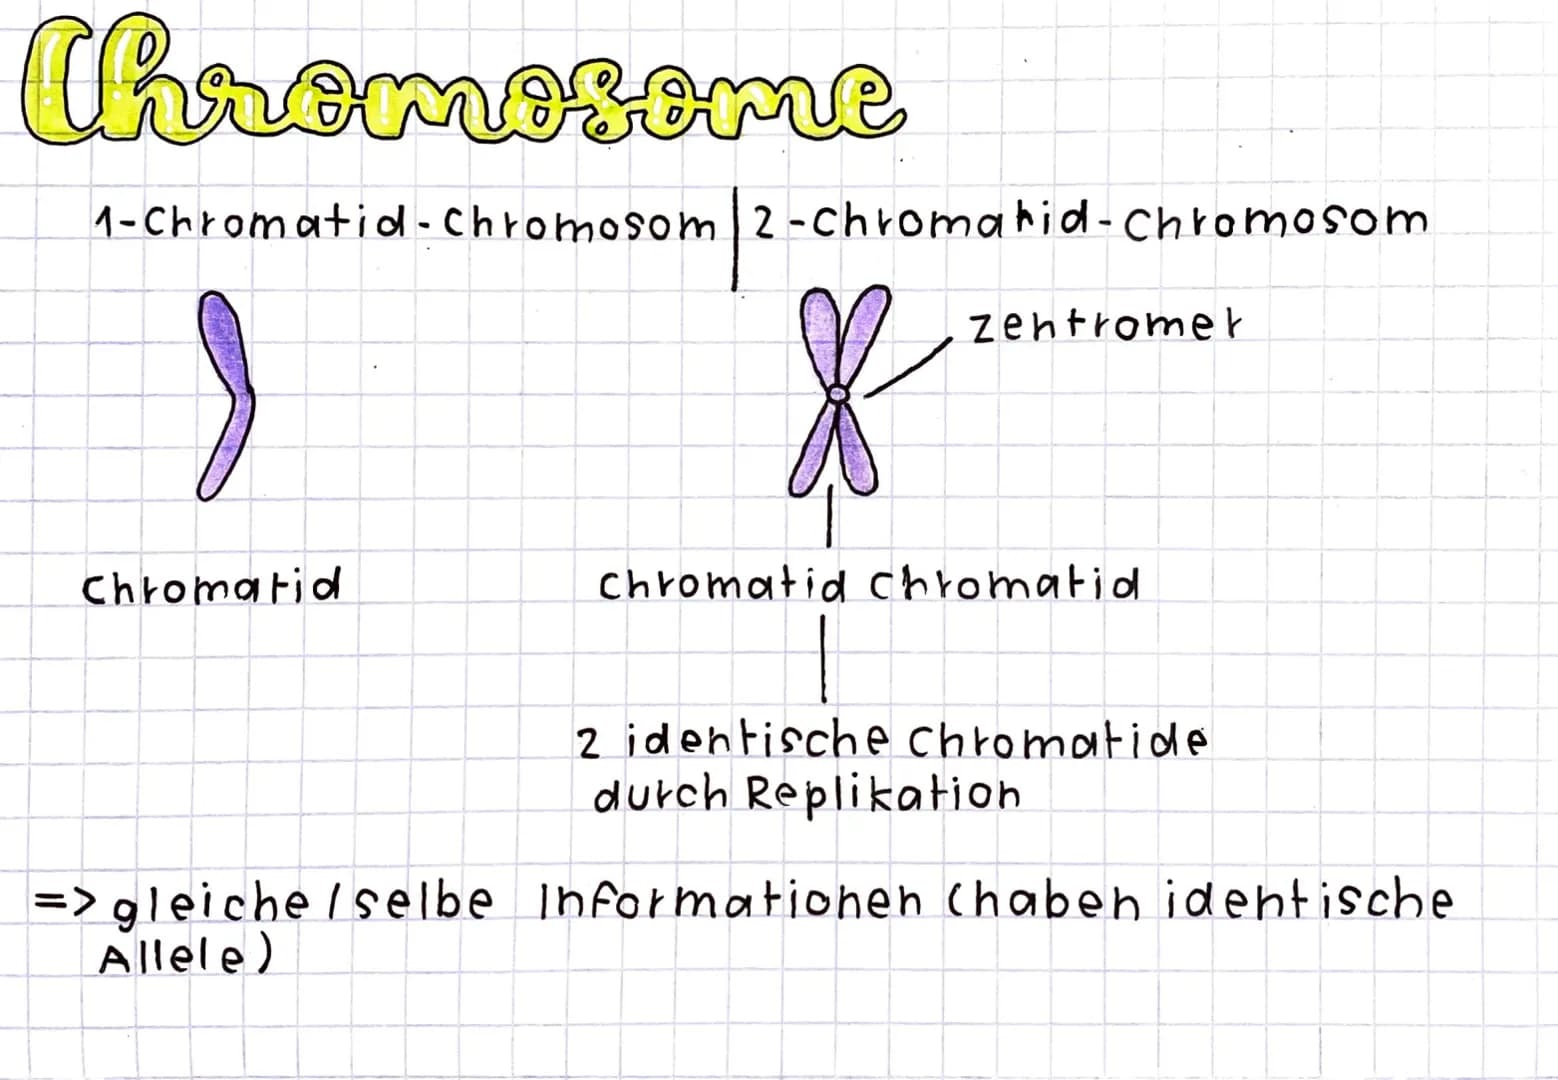 Chromosome
1-Chromatid-Chromosom | 2-Chromatid-Chromosom
Zentromer
Chromatid
Chromatid Chromatid
2 identische Chromatide
durch Replikation
=> gleiche / selbe Informationen (haben identische
Allele)